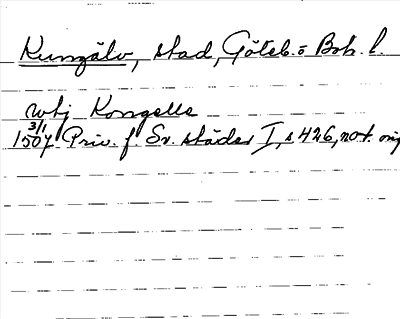 Kungälv, stad, Göteb. o Boh. l.
Kongelle
3/1
1507 Priv. f. Sv. städer I, s 426, not. orig